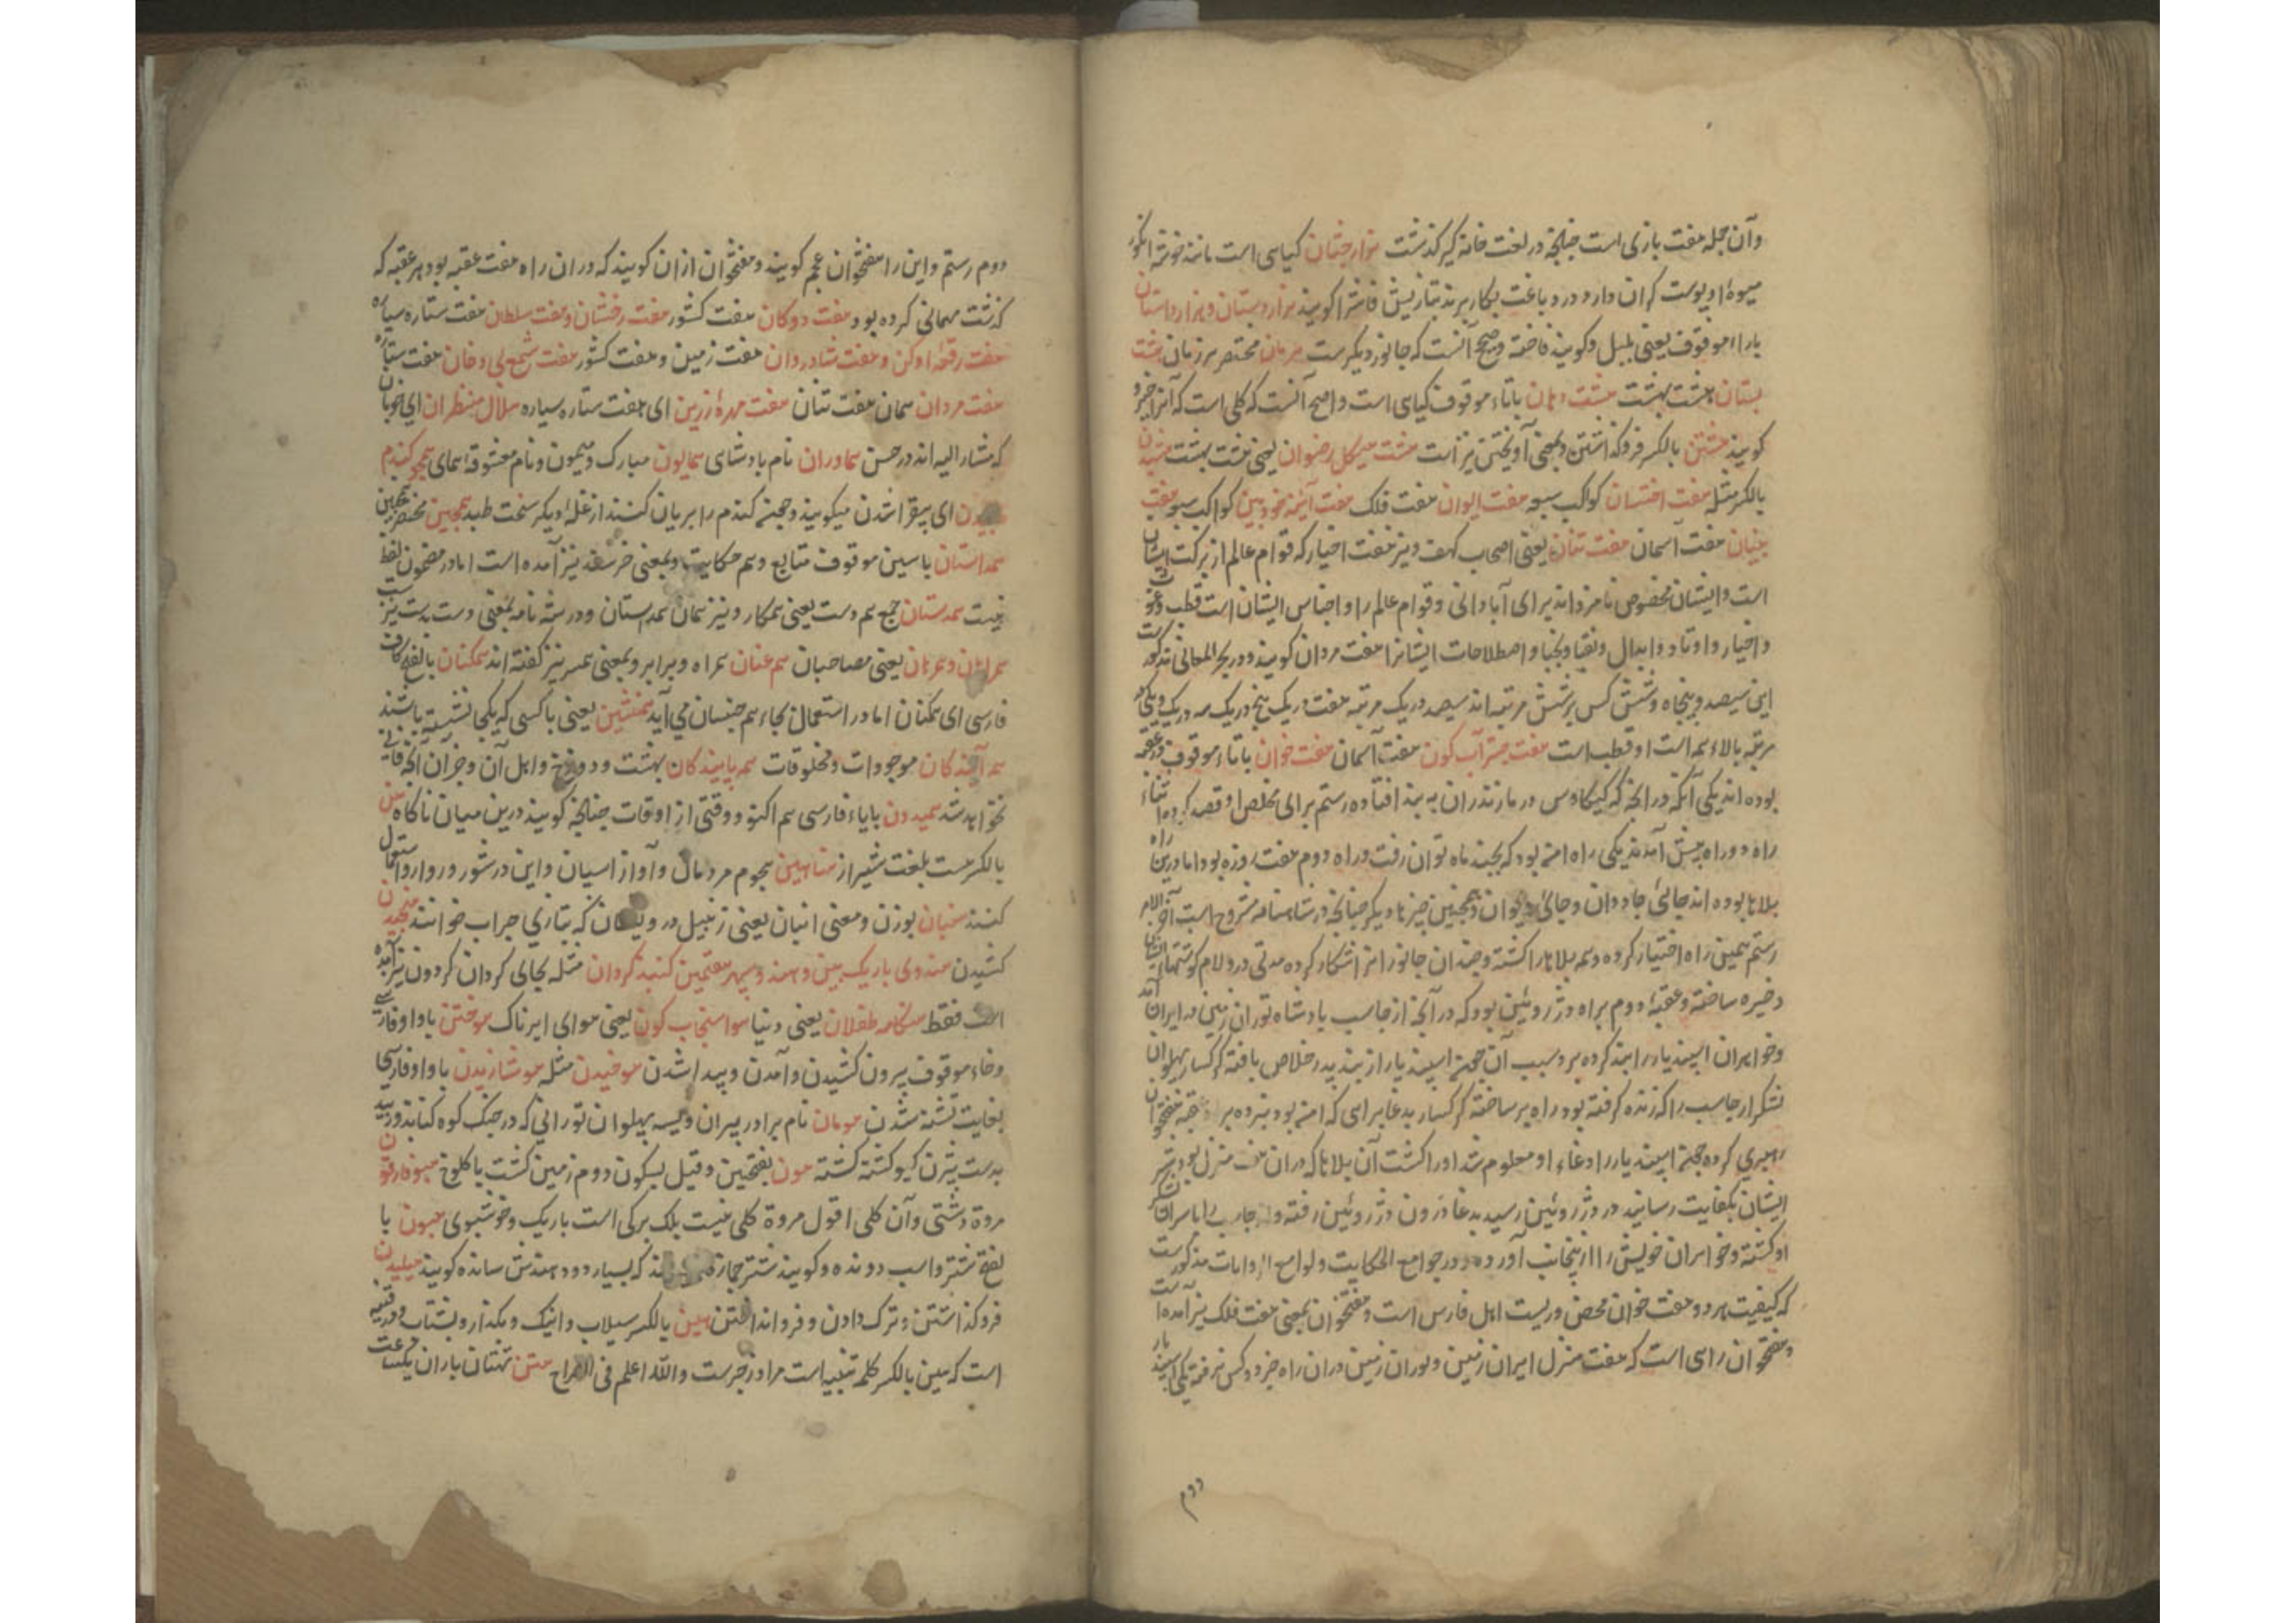 وآن جمله هفت بازی است چنانچه در لغت خانه گیر گذشت هزار جشان گیاهی است مانند خوشه انگور
میوهٔ او پوست گران دارد و در دباغت بکار برند بتازیش فاشرا گویند هزار دستان و هزار داستان
با را موقوف یعنی بلبل و گویند فاخته و صحیح آنست که جانور دیگرست هرمان مختصر هر زمان هشت
بستان هشت بهشت هشت دهان با تاء موقوف گیاهی است و اصح آنست که گلی است که آنرا خیرو
گویند هشتن بالکسر فرو گذاشتن و بمعنی آویختن نیز است هشت هیکل رضوان یعنی هشت بهشت هشیدن
بالکسر مثله هفت اختسان کواکب سبعه هفت ایوان هفت فلک هفت آینه خودبین کواکب سبعه هفت
بنیان هفت آسمان هفت تنان یعنی اصحاب کهف و نیز هفت اخیار که قوام عالم از برکت ایشان
است و ایشان مخصوص نامزد اند برای آبادانی و قوام عالم را و اجناس ایشان است قطب و غوث
و اخیار و اوتاد و ابدال و نقبا و نجبا و اصطلاحات ایشانرا هفت مردان گویند و در بحر المعانی مذکورست
این سیصد و پنجاه و شش کس بر شش مرتبه اند سیصد در یک مرتبه هفت در یک پنج در یک سه در یک و یکی که
مرتبه بالاء همه است او قطب است هفت چتر آب گون هفت آسمان هفت خوان با تاء موقوف دو عقبه
بوده اند یکی آنکه در آنچه که کیکاوس در مازندران به بند افتاده رستم برای مخلص او قصد کرد در اثناء
راه دو راه پیش آمدند یکی راه امن بود که بچند ماه توان رفت و راه دوم هفت روزه بود اما درین راه
بلاها بوده اند جائی جادوان و جائی دیوان و همچنین چیزها دیگر چنانچه در شاهنامه مشروح است آخر الامر
رستم همین راه اختیار کرده و همه بلاها را کشته و چندان جانور انرا شکار کرده مدتی در و لام گوشتهاء ایشان
ذخیره ساخته و عقبهٔ دوم براه دژ روئین بود که در آنچه ارجاسب پادشاه توران زمین در ایران آمد
و خواهران اسپندیار را بند کرده برد سبب آن چون اسپندیار از بند پدر خلاص یافته گرگسار پهلوان
لشکر ارجاسب را که زنده گرفته بود راه بر ساخته گرگسار بدغا براهی که امن بود نبرده براه هفتخوان
رهبری کرده چون اسپندیار را دغاء او معلوم شد او را کشت آن بلاها که دران هفت منزل بود بشر
ایشان بکفایت رسانید در دژ روئین رسید بدغا درون دژ روئین رفته و ارجاسب را با سران لشکر
او کشته و خواهران خویش را از پنجانب آورده و در جوامع الحکایت و لوامع الروایات مذکورست
که کیفیت هر دو هفت خوان محض وریست اهل فارس است و هفتخوان بمعنی هفت فلک نیز آمده است
و هفتخوان راهی است که هفت منزل ایران زمین و توران زمین دران راه جز دو کس نرفته یکی اسپندیار
دوم
دوم رستم و این را هفتخوان عجم گویند و هفتخوان ازان گویند که دران راه هفت عقبه بود هر عقبه که
گذشت مهمانی کرده بود هفت دوکان هفت کشور هفت رخشان و هفت سلطان هفت ستاره سیاره
هفت رقعهٔ ادکن و هفت شادروان هفت زمین و هفت کشور هفت شمع بی دخان هفت ستاره
هفت مردان همان هفت تنان هفت مهرهٔ زرین ای هفت ستاره سیاره هلال منظران ای خوبان
که مشار الیه اند در حسن هماوران نام پادشاهی همایون مبارک و میمون و نام معشوقه همای همچو گندم
ای بیقرار شدن میگویند و چون گندم را بریان کنند از غلهٔ دیگر سخت طپد همچین مختصر همچنین
همداستان با سین موقوف متابع و هم حکایت و بمعنی خرسند نیز آمده است اما در مضمون لفظ
نیست همدستان جمع هم دست یعنی همکار و نیز همان همدستان و در رشه نامه بمعنی دست بدست نیز
همراهان و همرهان یعنی مصاحبان هم عنان همراه و برابر و بمعنی همسر نیز گفته اند همگنان بالفتح کاف
فارسی ای همکنان اما در استعمال بجاء هم جنسان می آید همنشین یعنی با کسی که یکجا نشسته باشند
همه آیندگان موجودات و مخلوقات همه پایندگان بهشت و دوزخ و اهل آن و جز آن آنچه فانی
نخواهد شد همیدون با یاء فارسی هم اکنون و وقتی از اوقات چنانچه گویند درین میان ناگاه هن
بالکسر هست بلغت شیراز هناهین هجوم مردمان و آواز اسپان و این در شور و روارو استعمال
کنند هنبان بوزن و معنی انبان یعنی زنبیل درویشان که بتازی جراب خوانند هنجیدن
کشیدن هندوی باریک بین و هند و سپهر هفتمین گنبد گردان مثله بجای گردان گردون نیز آمده
است فقط هنگامه طفلان یعنی دنیا هوا سنجاب گون یعنی هوای ابرناک هوختن با واو فارسی
و خاء موقوف بیرون کشیدن و آمدن و پیدا شدن هوخیدن مثله هوشازیدن با واو فارسی
بغایت تشنه شدن هومان نام برادر پیران ویسه پهلوان تورانی که در جنگ کوه کنابد
بدست بیژن گیو کشته گشته هون بفتحین و قیل بسکون دوم زمین کشت با کلوخ هیوفاریقون
مروة دشتی و آن گلی اقول مروة گلی نیست بلک برگی است باریک و خوشبوی هیون با
لفتح شتر و اسپ دونده و گویند شتر جمازه که بسیار دود هندش سانده گویند هیلیدن
فرو گذاشتن و ترک دادن و فرو انداختن هین بالکسر سیلاب و اینک و بگذار و بشتاب و در قنیه
است که هین بالکسر کلمه تنبیه است مر او زجرست والله اعلم فی الصراح هتن تهتان باران یکساعت